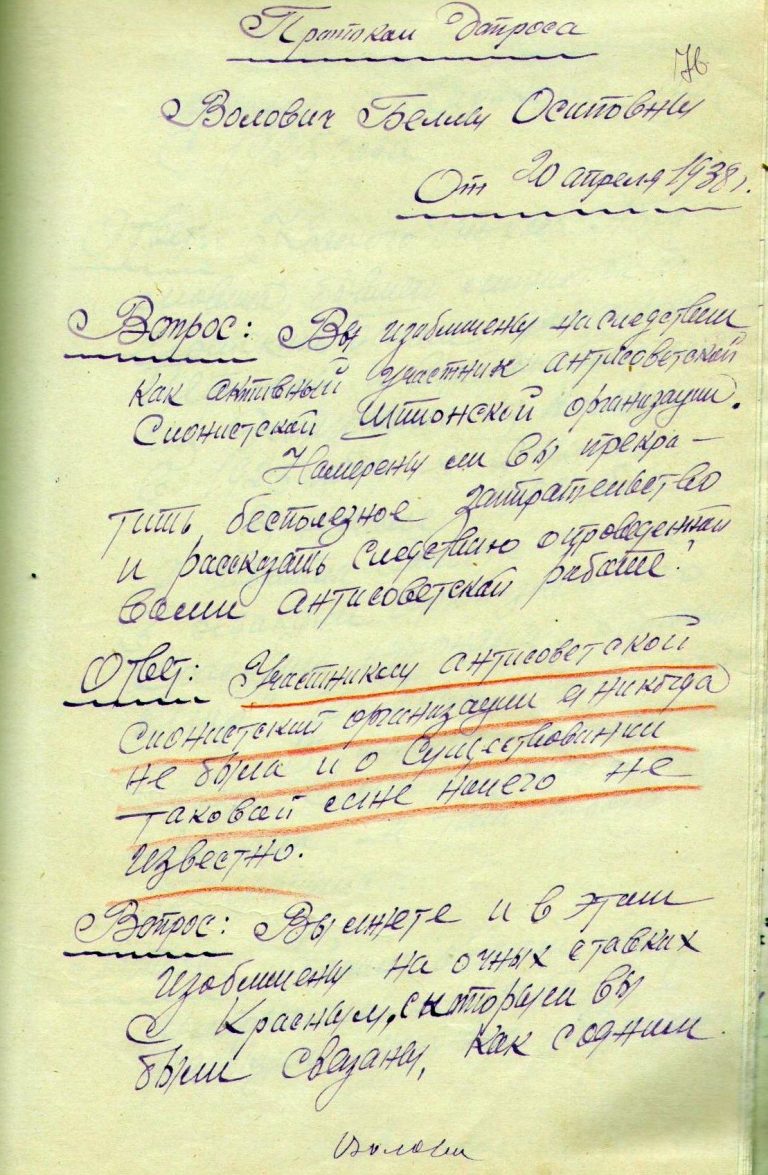 Протокол допроса
76
Волович Беллы Осиповны
От 20 апреля 1938 г.
Вопрос: Вы изобличены следствием
как активный участник антисоветской
сионистской шпионской организации.
Намерены ли вы прекра-
тить бесполезное запирательство
и рассказать следствию о проведенной
вами антисоветской работе?
Ответ: Участником антисоветской
сионистской организации я никогда
не была и о существовании
таковой мне ничего не
известно.
Вопрос: Вы лжете и в этом
изобличены на очных ставках
с Красным, с которым вы
были связаны, как с одним